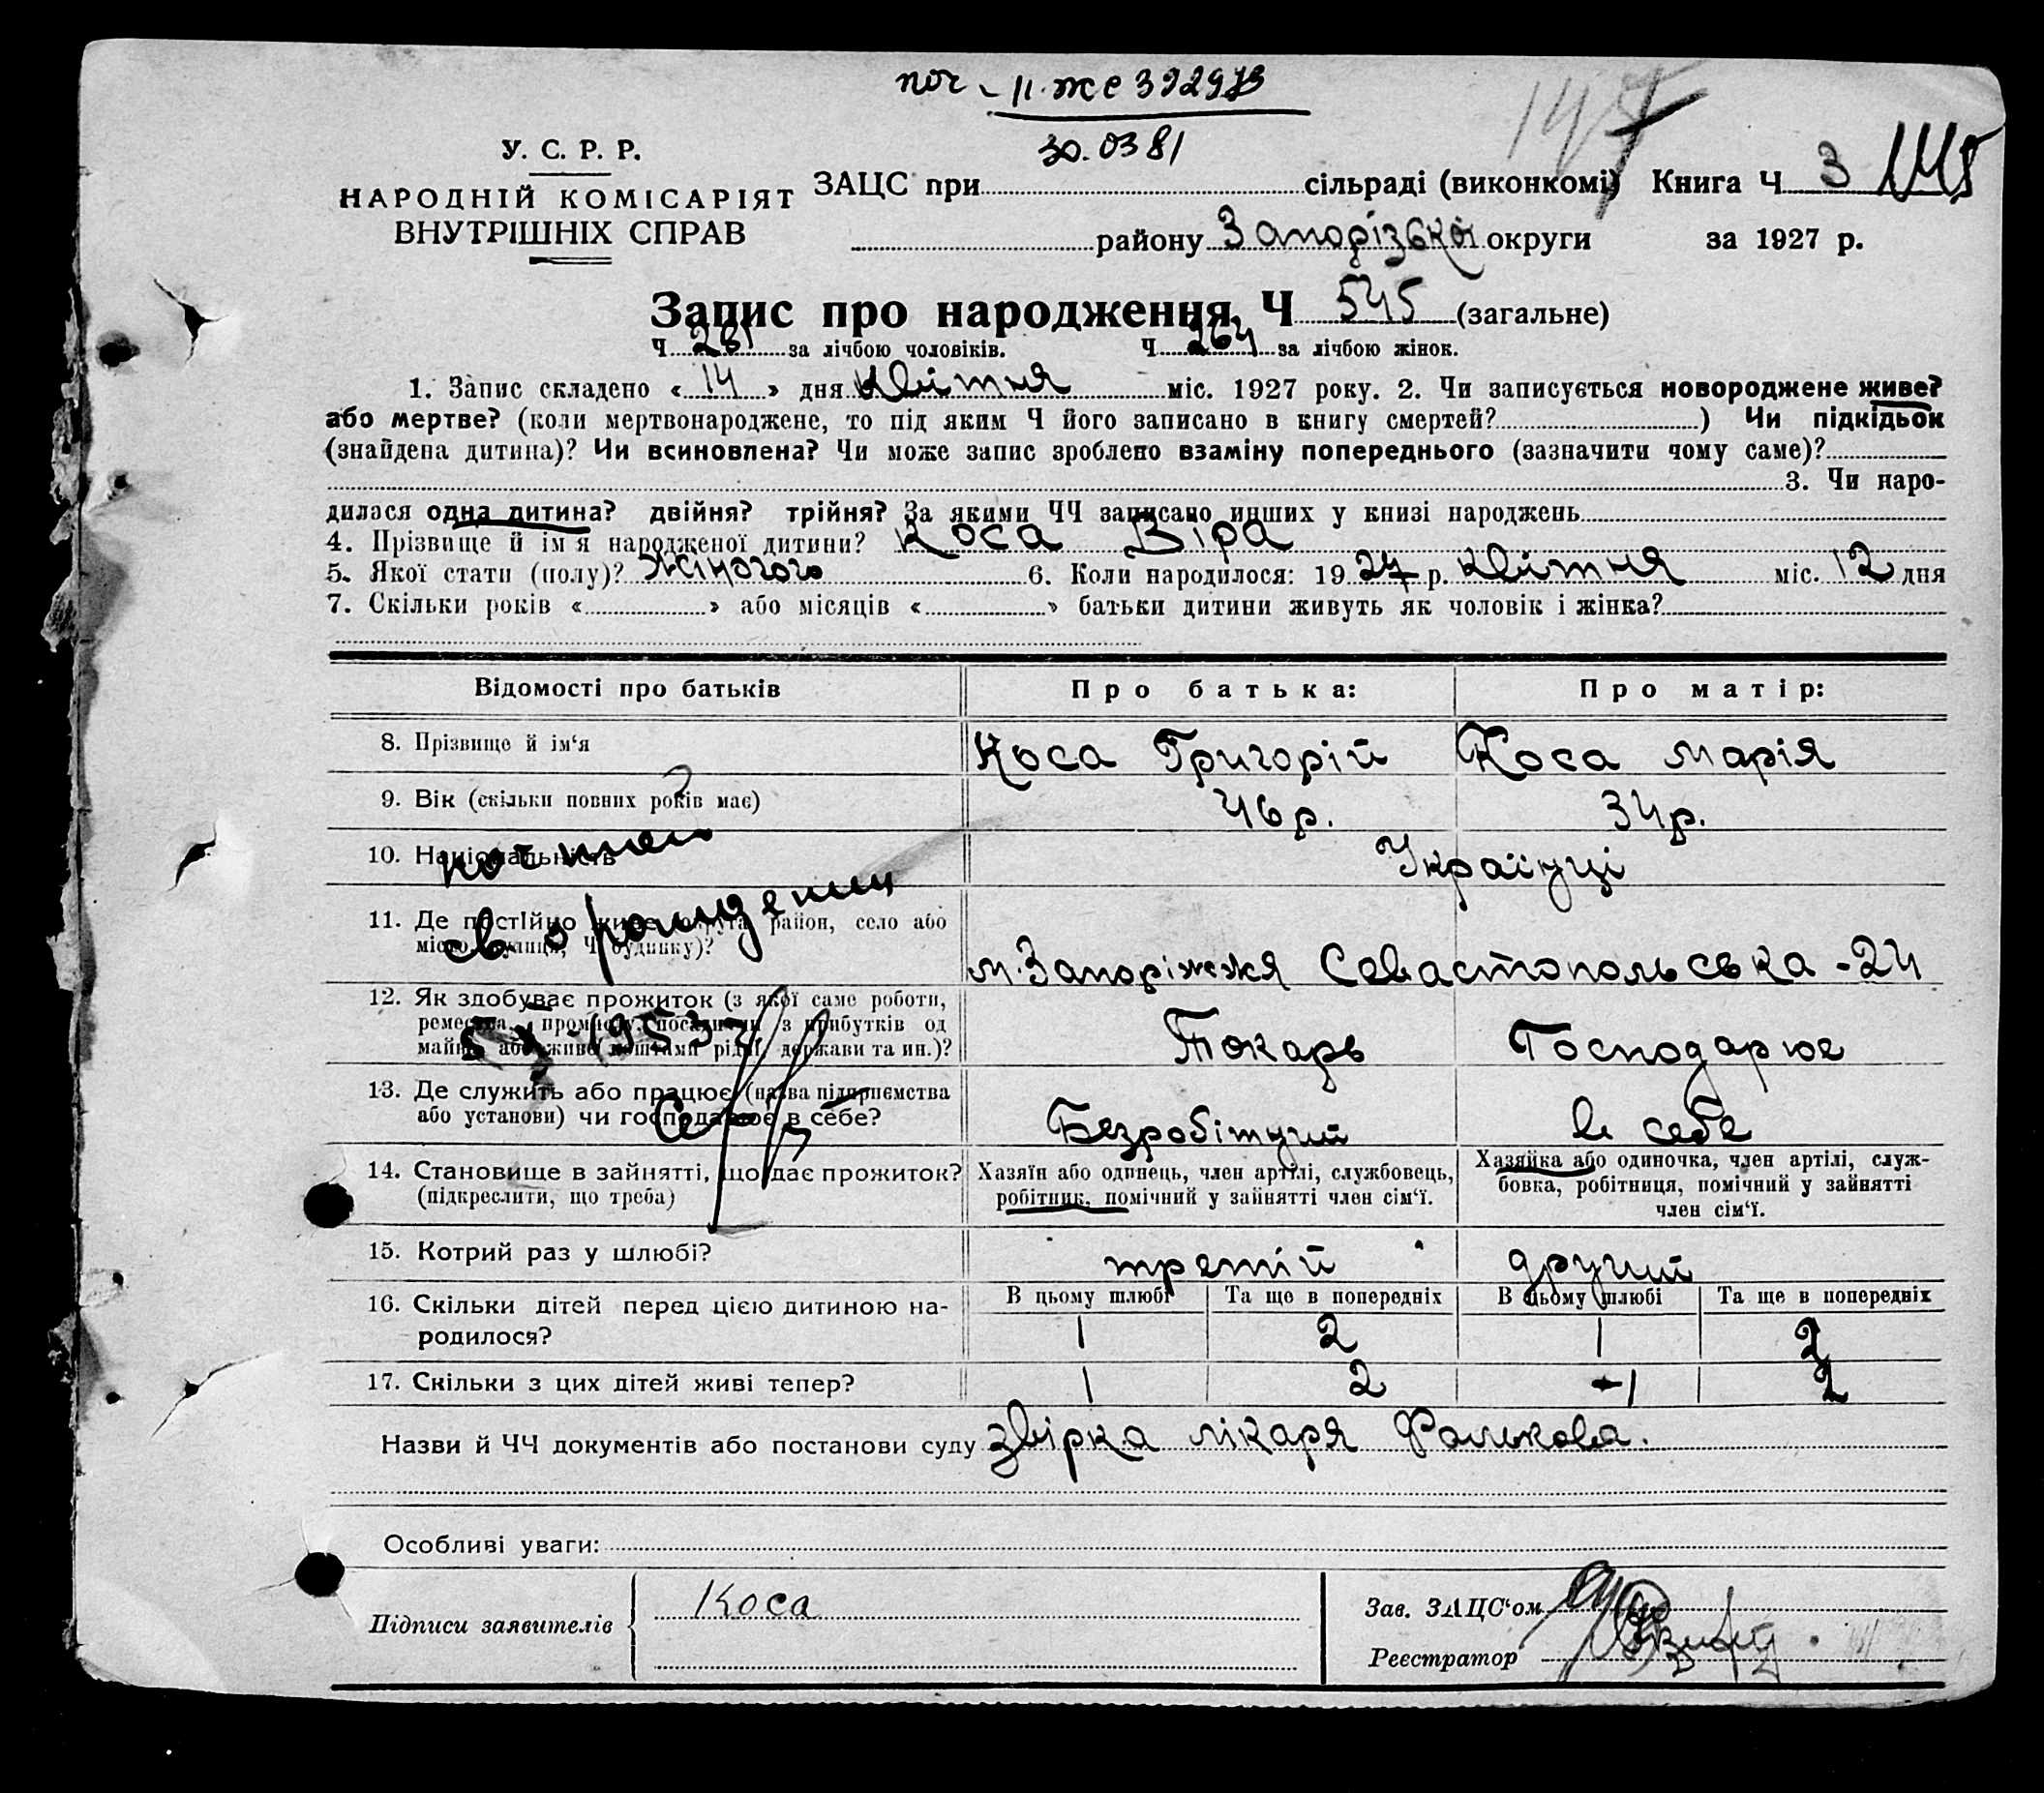 поч - II-ЖС 392973
30.03 81
147
У. С. Р. Р.
НАРОДНІЙ КОМІСАРІЯТ
ВНУТРІШНІХ СПРАВ
ЗАЦС при сільраді (виконкомі) Книга Ч 3 145
району Запорізької округи за 1927 р.
Запис про народження Ч 545 (загальне)
Ч 281 за лічбою чоловіків. Ч 264 за лічбою жінок.
1. Запис складено « 14 » дня квітня міс. 1927 року. 2. Чи записується новороджене живе?
або мертве? (коли мертвонароджене, то під яким Ч його записано в книгу смертей? ) Чи підкідьок
(знайдена дитина)? Чи всиновлена? Чи може запис зроблено взаміну попереднього (зазначити чому саме)?
3. Чи наро-
дилася одна дитина? двійня? трійня? За якими ЧЧ записано инших у книзі народжень
4. Прізвище й ім'я народженої дитини? Коса Віра
5. Якої стати (полу)? жіночого 6. Коли народилося: 1927 р. квітня міс. 12 дня
7. Скільки років « » або місяців « » батьки дитини живуть як чоловік і жінка?
Відомості про батьків Про батька: Про матір:
8. Прізвище й ім'я Коса Григорій Коса Марія
9. Вік (скільки повних років має) 46 р. 34 р.
10. Національність Українці
11. Де постійно живе (округа, район, село або
місто, вулиця, Ч будинку)? м. Запоріжжя Севастопольська - 24
12. Як здобуває прожиток (з якої саме роботи,
ремества, промислу, посади чи з прибутків од
майна або живе коштами рідні, держави та ин.)? Токарь Господарює
13. Де служить або працює (назва підприємства
або установи) чи господарює в себе? Безробітний в себе
св о рождении
1953
14. Становище в зайнятті, що дає прожиток?
(підкреслити, що треба)
Хазяїн або одинець, член артілі, службовець,
робітник, помічний у зайнятті член сім'ї.
Хазяйка або одиночка, член артілі, служ-
бовка, робітниця, помічний у зайнятті
член сім'ї.
15. Котрий раз у шлюбі? третій другий
В цьому шлюбі Та ще в попередніх В цьому шлюбі Та ще в попередніх
16. Скільки дітей перед цією дитиною на-
родилося? 1 2 1 2
17. Скільки з цих дітей живі тепер? 1 2 1 2
Назви й ЧЧ документів або постанови суду звірка лікаря Фалькова.
Особливі уваги:
Підписи заявителів Коса
Зав. ЗАЦС'ом
Реєстратор